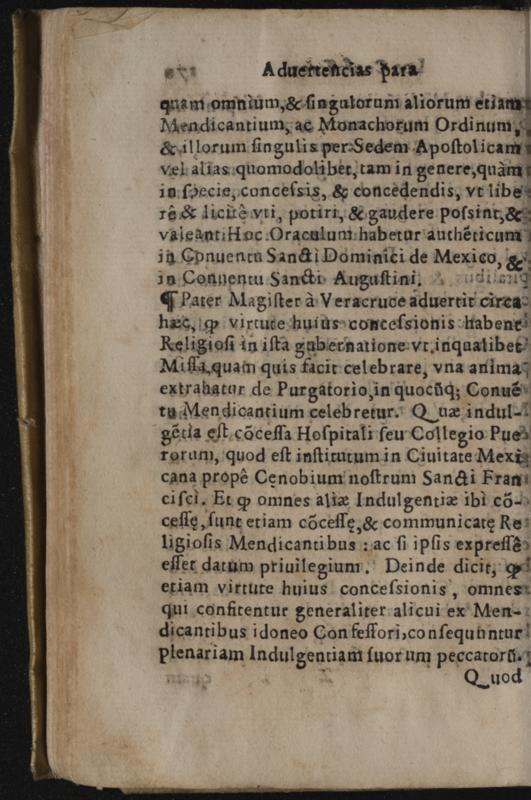 Aduertencias para
quam omnium,& ſingulorum aliorum etiam
Mendicantium, ac Monachorum Ordinum,
& illorum ſingulis per Sedem Apoſtolicam
vel alias quomodolibet, tam in genere, quàm
in ſpecie, conceſsis, & concedendis, vt libe
rê & licitê vti, potiri, & gaudere poſsint,&
valeant. Hoc Oraculum habetur authẽticum
in Conuentu Sancti Dominici de Mexico, &
in Conuentu Sancti Auguſtini.
¶ Pater Magiſter à Veracruce aduertit circa
hæc, ꝙ virtute huius conceſsionis habent
Religioſi in iſta gubernatione vt inqualibet
Miſſa, quam quis facit celebrare, vna anima
extrahatur de Purgatorio, in quocũq; Conuẽ
tu Mendicantium celebretur. Quæ indul-
gẽtia eſt cõceſſa Hoſpitali ſeu Collegio Pue
rorum, quod eſt inſtitutum in Ciuitate Mexi
cana propê Cenobium noſtrum Sancti Fran
ciſci. Et ꝙ omnes aliæ Indulgentiæ ibi cõ-
ceſſę, ſunt etiam cõceſſę, & communicatę Re
ligioſis Mendicantibus : ac ſi ipſis expreſſê
eſſet datum priuilegium. Deinde dicit, ꝙ
etiam virtute huius conceſsionis, omnes
qui confitentur generaliter alicui ex Men-
dicantibus idoneo Confeſſori, conſequuntur
plenariam Indulgentiam ſuorum peccatorũ.
Quod